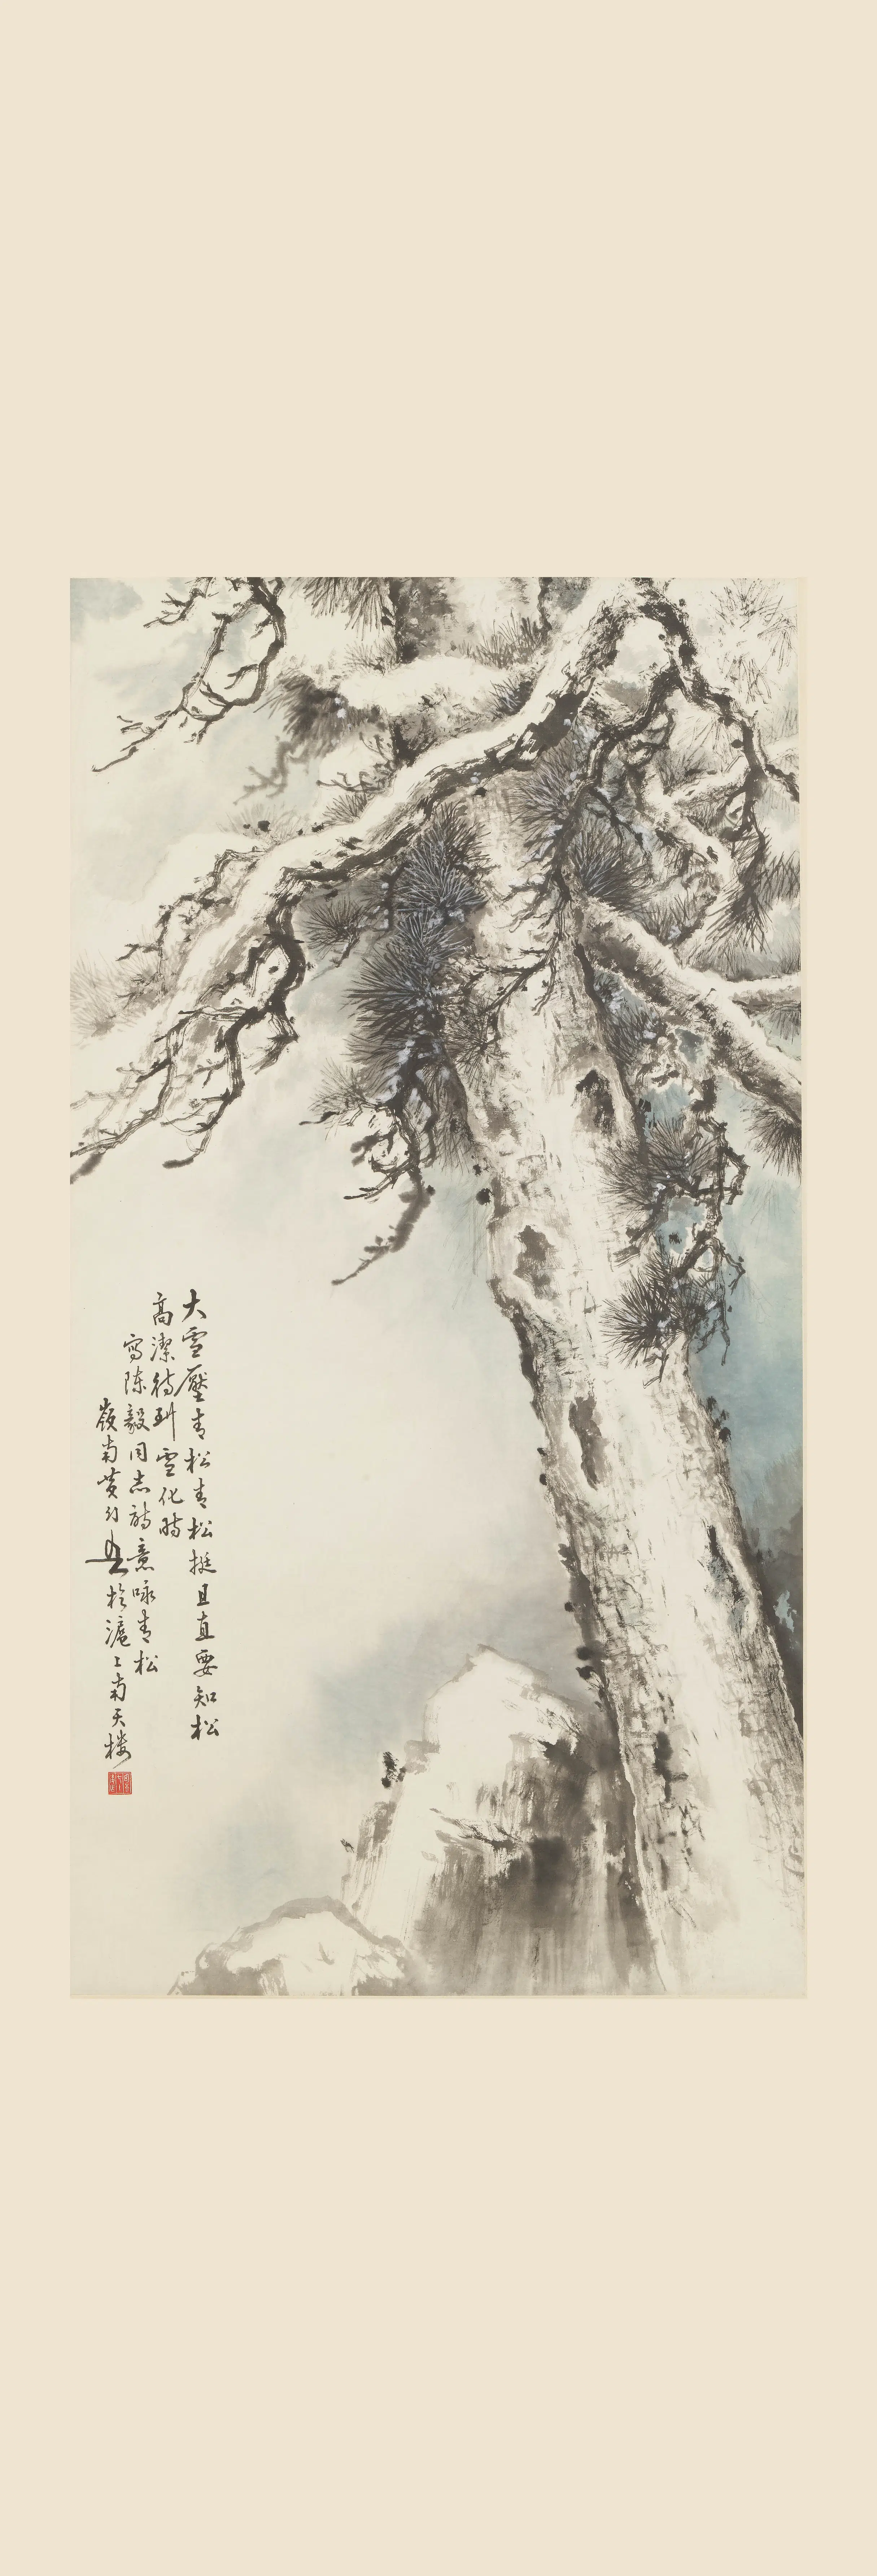 大雪壓青松青松挺且直要知松
高潔待到雪化時
寫陈毅同志詩意咏青松
嶺南黄幻吾於滬上南天楼